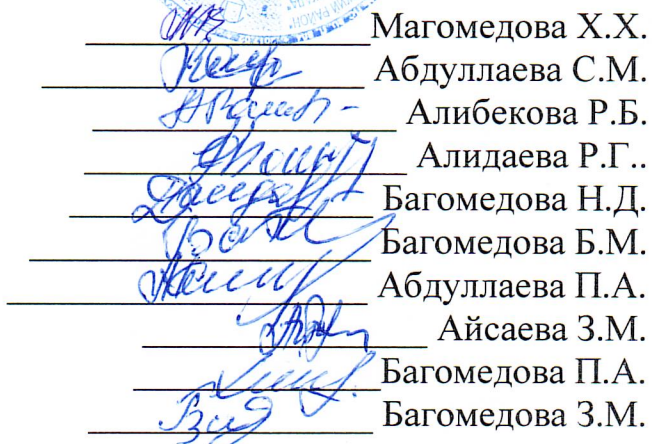 Магомедова Х.Х.
Абдуллаева С.М.
Алибекова Р.Б.
Алидаева Р.Г..
Багомедова Н.Д.
Багомедова Б.М.
Абдуллаева П.А.
Айсаева З.М.
Багомедова П.А.
Багомедова З.М.